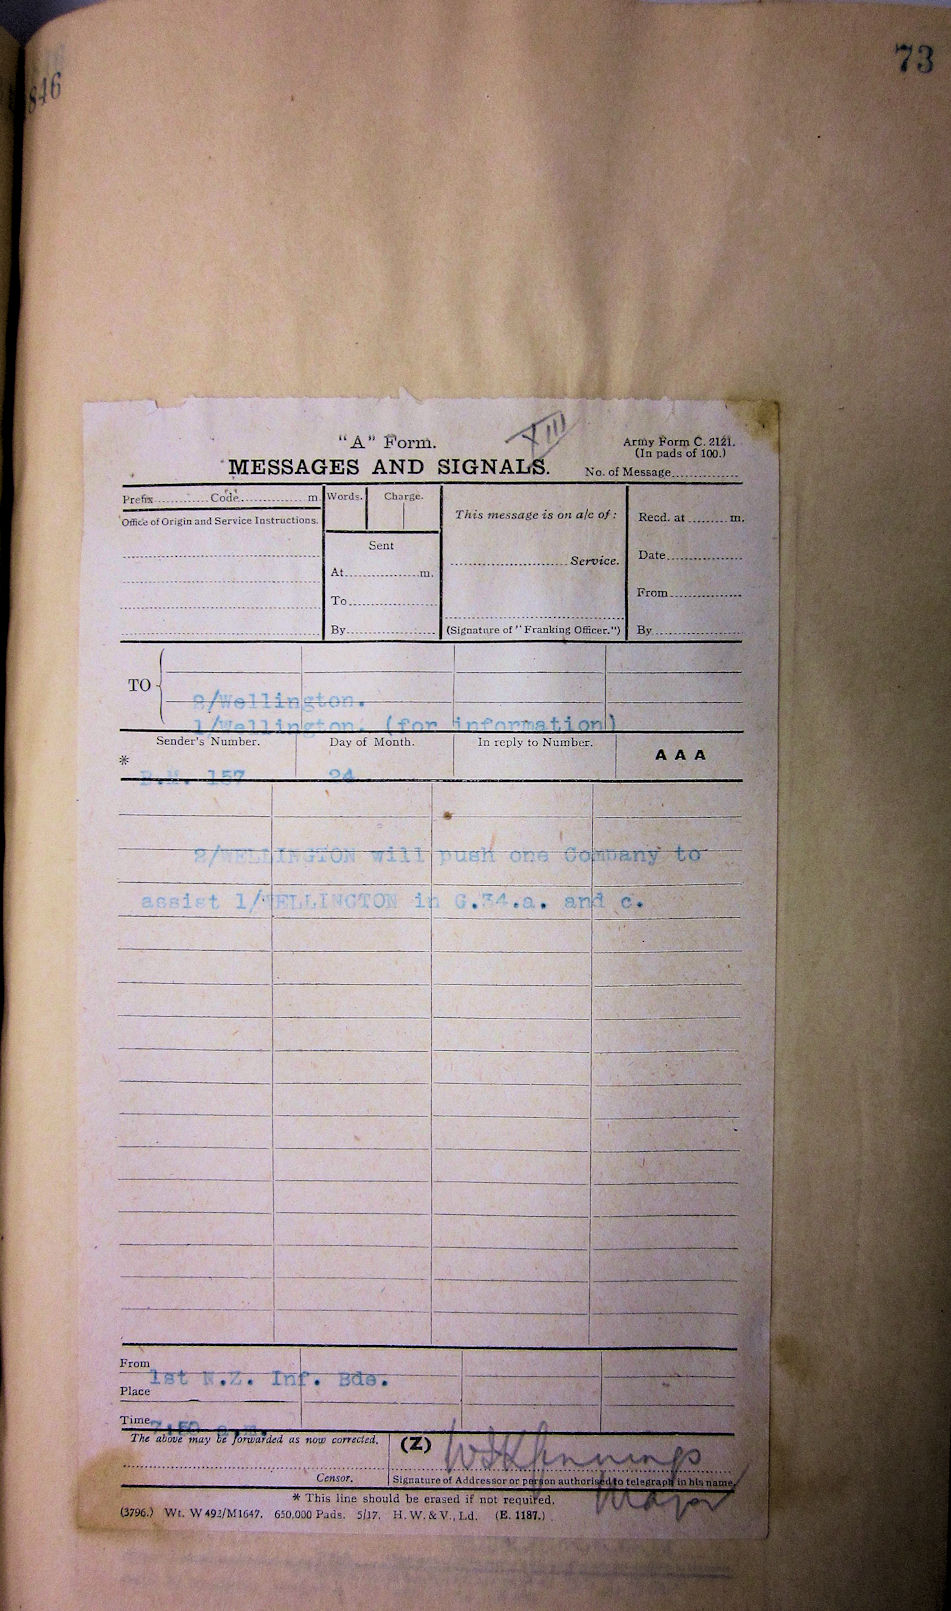 73
846
XIII
"A" Form.
Army Form C. 2121.
(In pads of 100.)
MESSAGES AND SIGNALS.
No. of Message
Prefix Code m.
Words. Charge.
This message is on a/c of:
Recd. at m.
Office of Origin and Service Instructions.
Sent
Service.
Date
At m.
From
To
By
(Signature of "Franking Officer.")
By
TO
2/Wellington.
1/Wellington. (for information)
Sender's Number. Day of Month. In reply to Number. A A A
*
B.M. 157 24
2/WELLINGTON will push one Company to
assist 1/WELLINGTON in G.34.a. and c.
From
1st N.Z. Inf. Bde.
Place
Time 7:50 a.m.
The above may be forwarded as now corrected. (Z) Jennings
Censor. Signature of Addressor or person authorised to telegraph in his name.
* This line should be erased if not required. Major
(3796.) Wt. W492/M1647. 650,000 Pads. 5/17. H. W. & V., Ld. (E. 1187.)